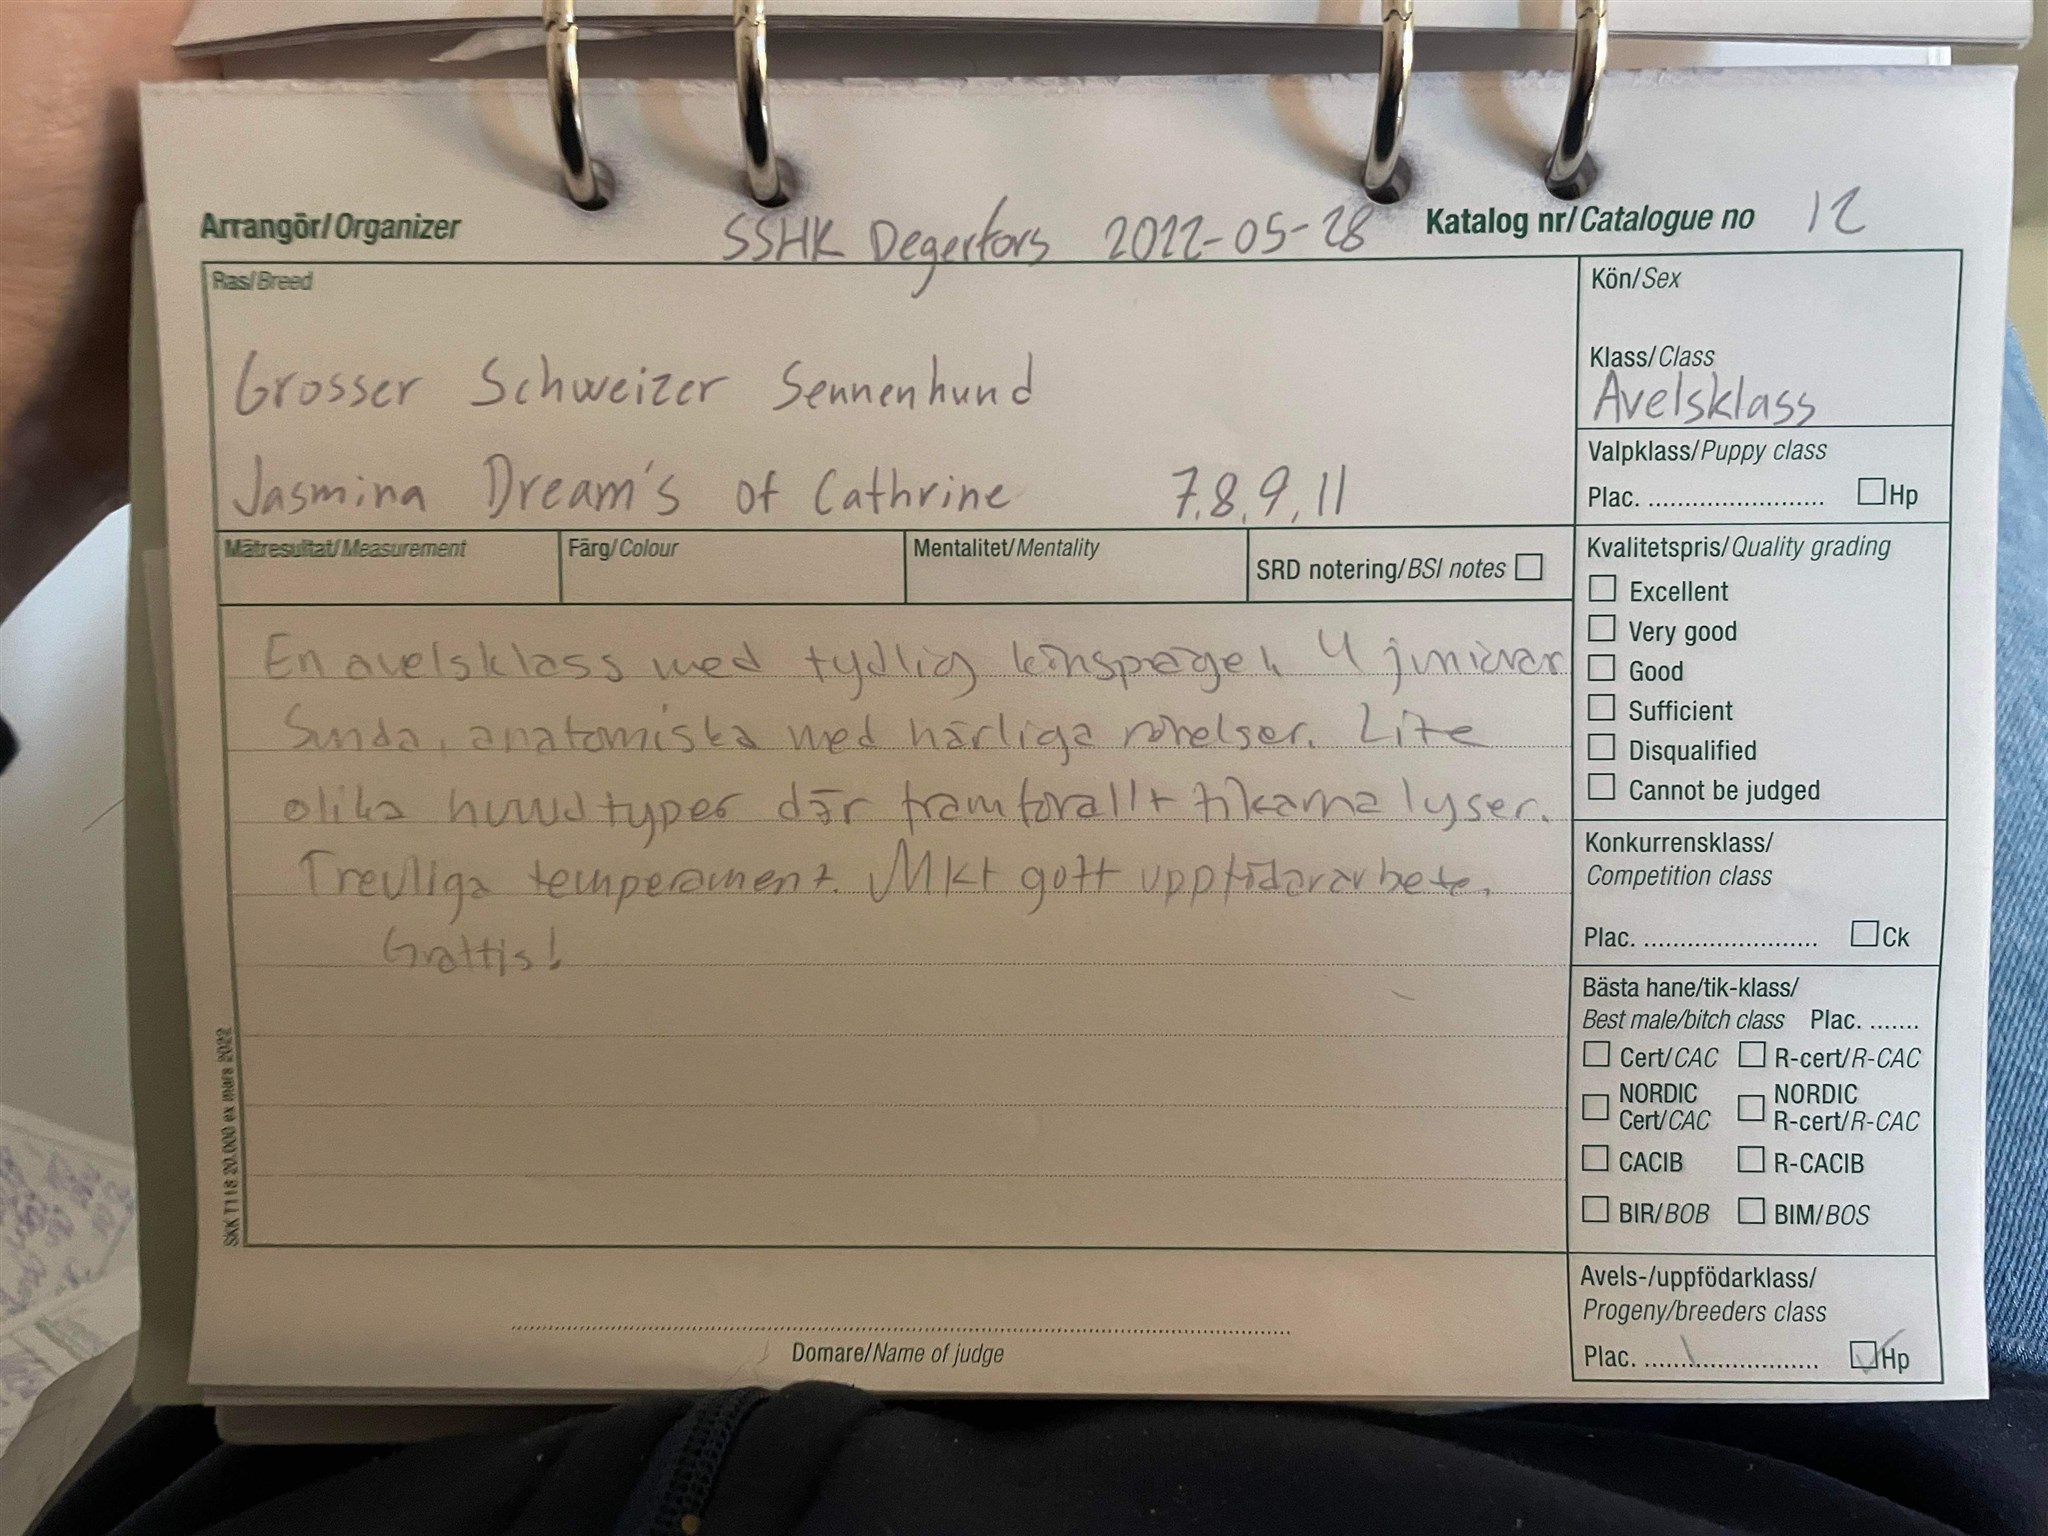 Arrangör/Organizer SSHK Degerfors 2022-05-28 Katalog nr/Catalogue no 12
Ras/Breed
Grosser Schweizer Sennenhund
Jasmina Dream's of Cathrine 7,8,9,11
Kön/Sex
Klass/Class
Avelsklass
Valpklass/Puppy class
Plac. ........................ Hp
Mätresultat/Measurement Färg/Colour Mentalitet/Mentality SRD notering/BSI notes
Kvalitetspris/Quality grading
Excellent
Very good
Good
Sufficient
Disqualified
Cannot be judged
En avelsklass med tydlig könsprägel, 4 juniorer
Sunda, anatomiska med härliga rörelser. Lite
olika huvudtyper där framförallt tikarna lyser.
Trevliga temperament. Mkt gott uppfödararbete.
Grattis!
Konkurrensklass/
Competition class
Plac. ........................ Ck
Bästa hane/tik-klass/
Best male/bitch class Plac. .......
Cert/CAC R-cert/R-CAC
NORDIC Cert/CAC NORDIC R-cert/R-CAC
CACIB R-CACIB
BIR/BOB BIM/BOS
Avels-/uppfödarklass/
Progeny/breeders class
Plac. ........................ Hp
SKK T118 20.000 ex mars 2022
Domare/Name of judge